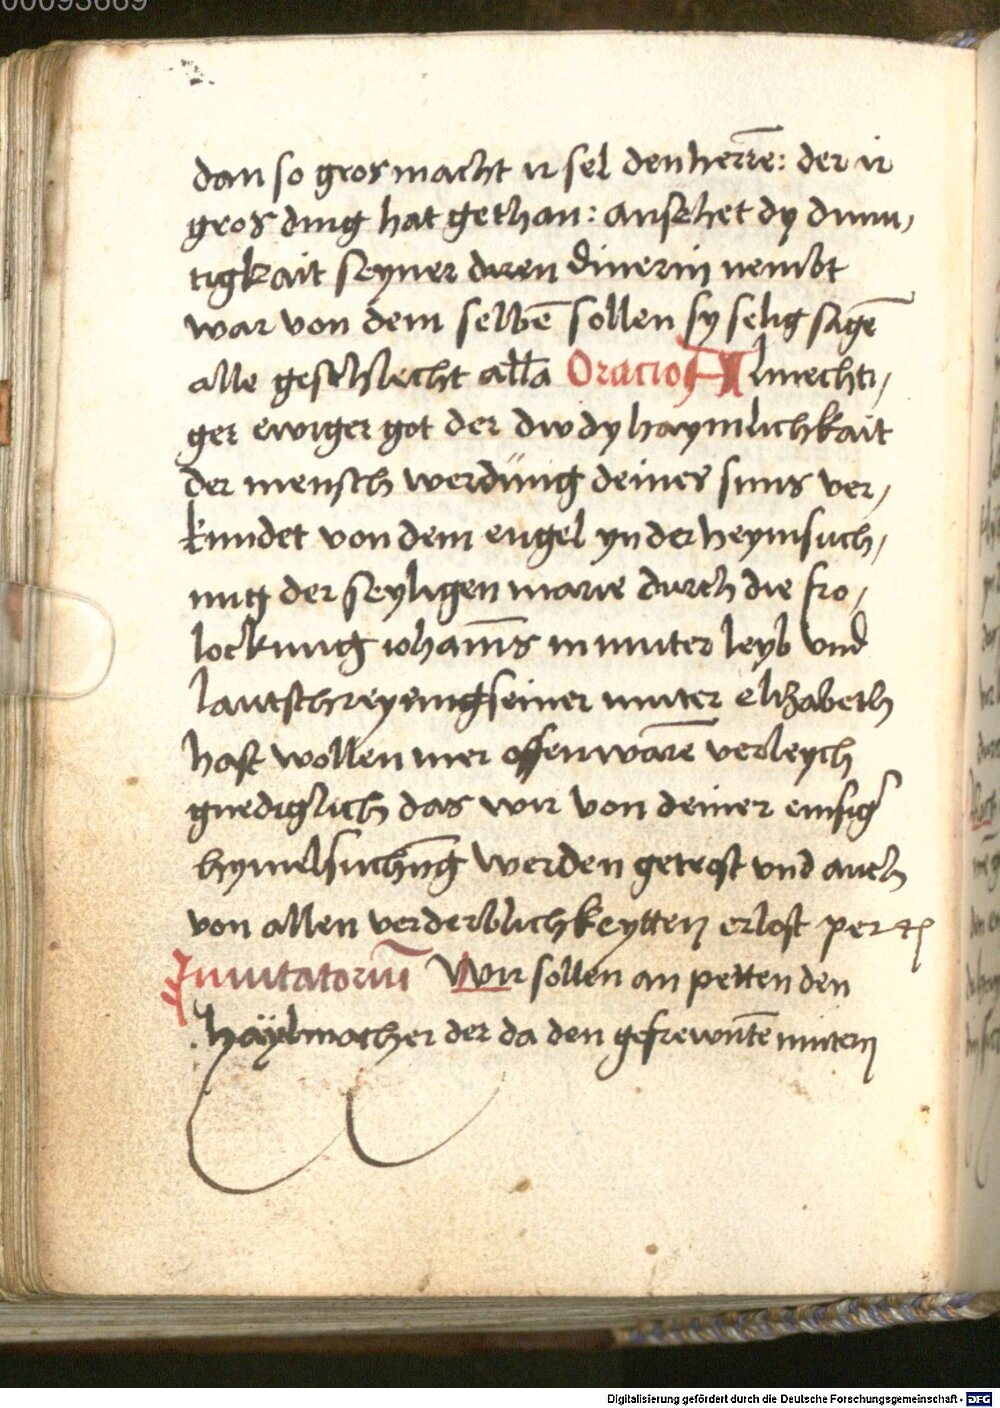 00093669
dan so gros macht ir sel den herre̅: der ir
gros ding hat gethan: ansehet dy dimu,
tigkait seyner diren dinerin nembt
war von dem selbe̅ sollen sy selig sage̅
alle geschlecht all̅a Oracio Almechti,
ger ewiger got der diw dy haymlichkait
der mensch werdung deines suns ver,
kundet von dem engel yn der heymsuch,
nung der seyligen marie durch die fro,
lockung iohan̅is in muter leyb vnd
lautschreyung seiner muter elizabeth
hast wollen mer offenware̅ verleych
gnediglich das wir von deiner einsig
hymelsuchu̅g werden getrost vnd auch
von allen verderblichkeytten erlost per
Inuitatoriu̅ Wir sollen an petten den
haylmacher der da den gefrewnte̅ mutern
Digitalisierung gefördert durch die Deutsche Forschungsgemeinschaft - DFG